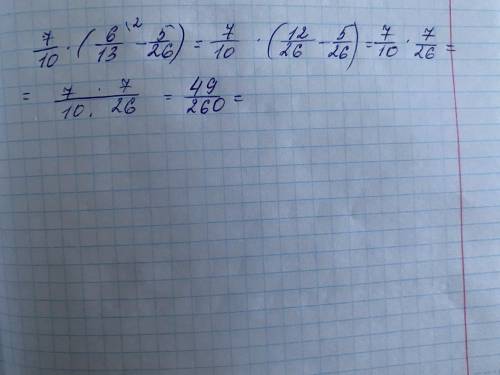 7/10 · (6/13 \2 − 5/26) = 7/10 · (12/26 − 5/26) = 7/10 · 7/26 =
= 7 · 7 / 10 · 26 = 49/260 =